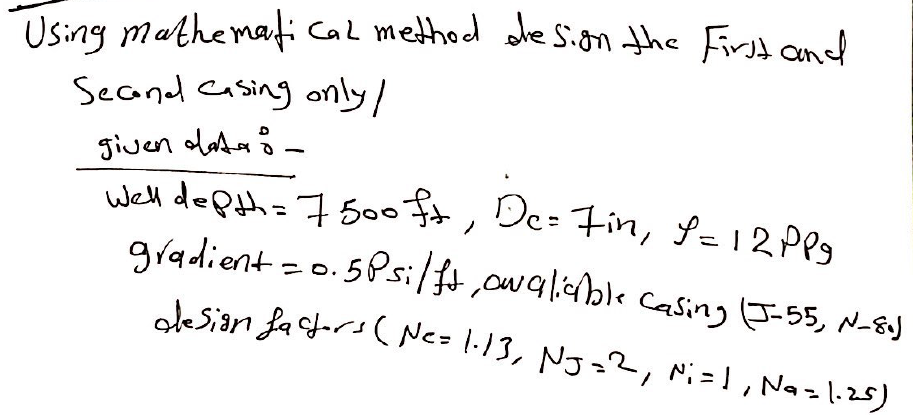 Using mathematical method design the First and
Second casing only/
given data:-
Well depth = 7500 ft, Dc = 7in, ρ = 12 PPg
gradient = 0.5 Psi/ft, avaliable casing (J-55, N-80)
design factors (Nc = 1.13, NJ = 2, Ni = 1, Na = 1.25)